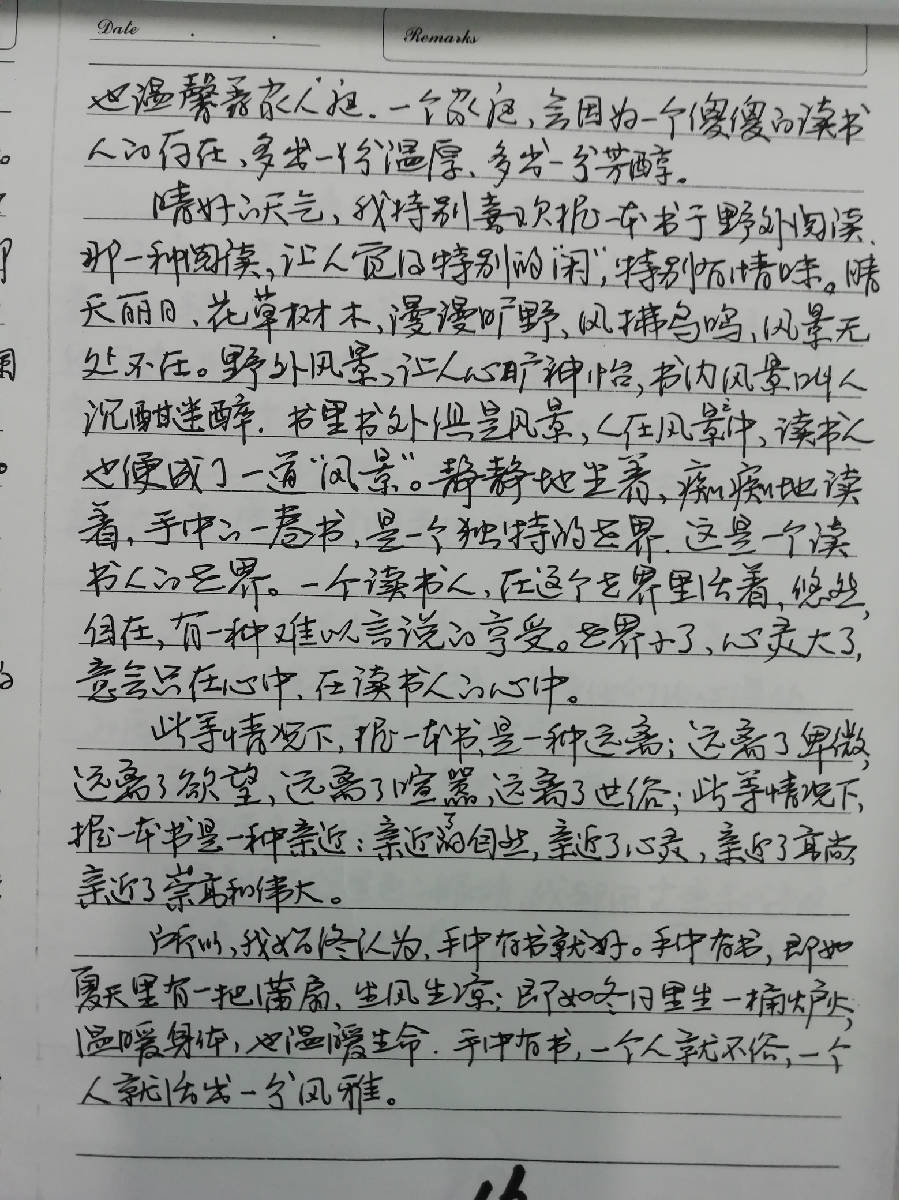 Date
Remarks
也温馨着家人庭.一个家庭,会因为一个傻傻的读书
人的存在、多出一份温厚、多出一分芳醇。
晴好的天气,我特别喜欢握一本书于野外阅读.
那一种阅读,让人觉得特别的"闲",特别有情味。晴
天丽日、花草树木,漫漫旷野、风拂鸟鸣,风景无
处不在。野外风景,让人心旷神怡,书内风景叫人
沉酣迷醉.书里书外俱是风景,人在风景中,读书人
也便成了一道"风景"。静静地坐着,痴痴地读
着,手中的一卷书,是一个独特的世界.这是一个读
书人的世界。一个读书人,在这个世界里活着,悠然,
自在,有一种难以言说的享受。世界小了、心灵大了,
意会只在心中,在读书人的心中。
此等情况下,握一本书,是一种远离;远离了卑微,
远离了欲望,远离了喧嚣,远离了世俗;此等情况下,
握一本书是一种亲近:亲近了自然,亲近了心灵,亲近了高尚,
亲近了崇高和伟大。
所以,我始终认为,手中有书就好。手中有书,即如
夏天里有一把蒲扇、生风生凉;即如冬日里生一桶炉火,
温暖身体,也温暖生命.手中有书,一个人就不俗,一个
人就活出一分风雅。
16